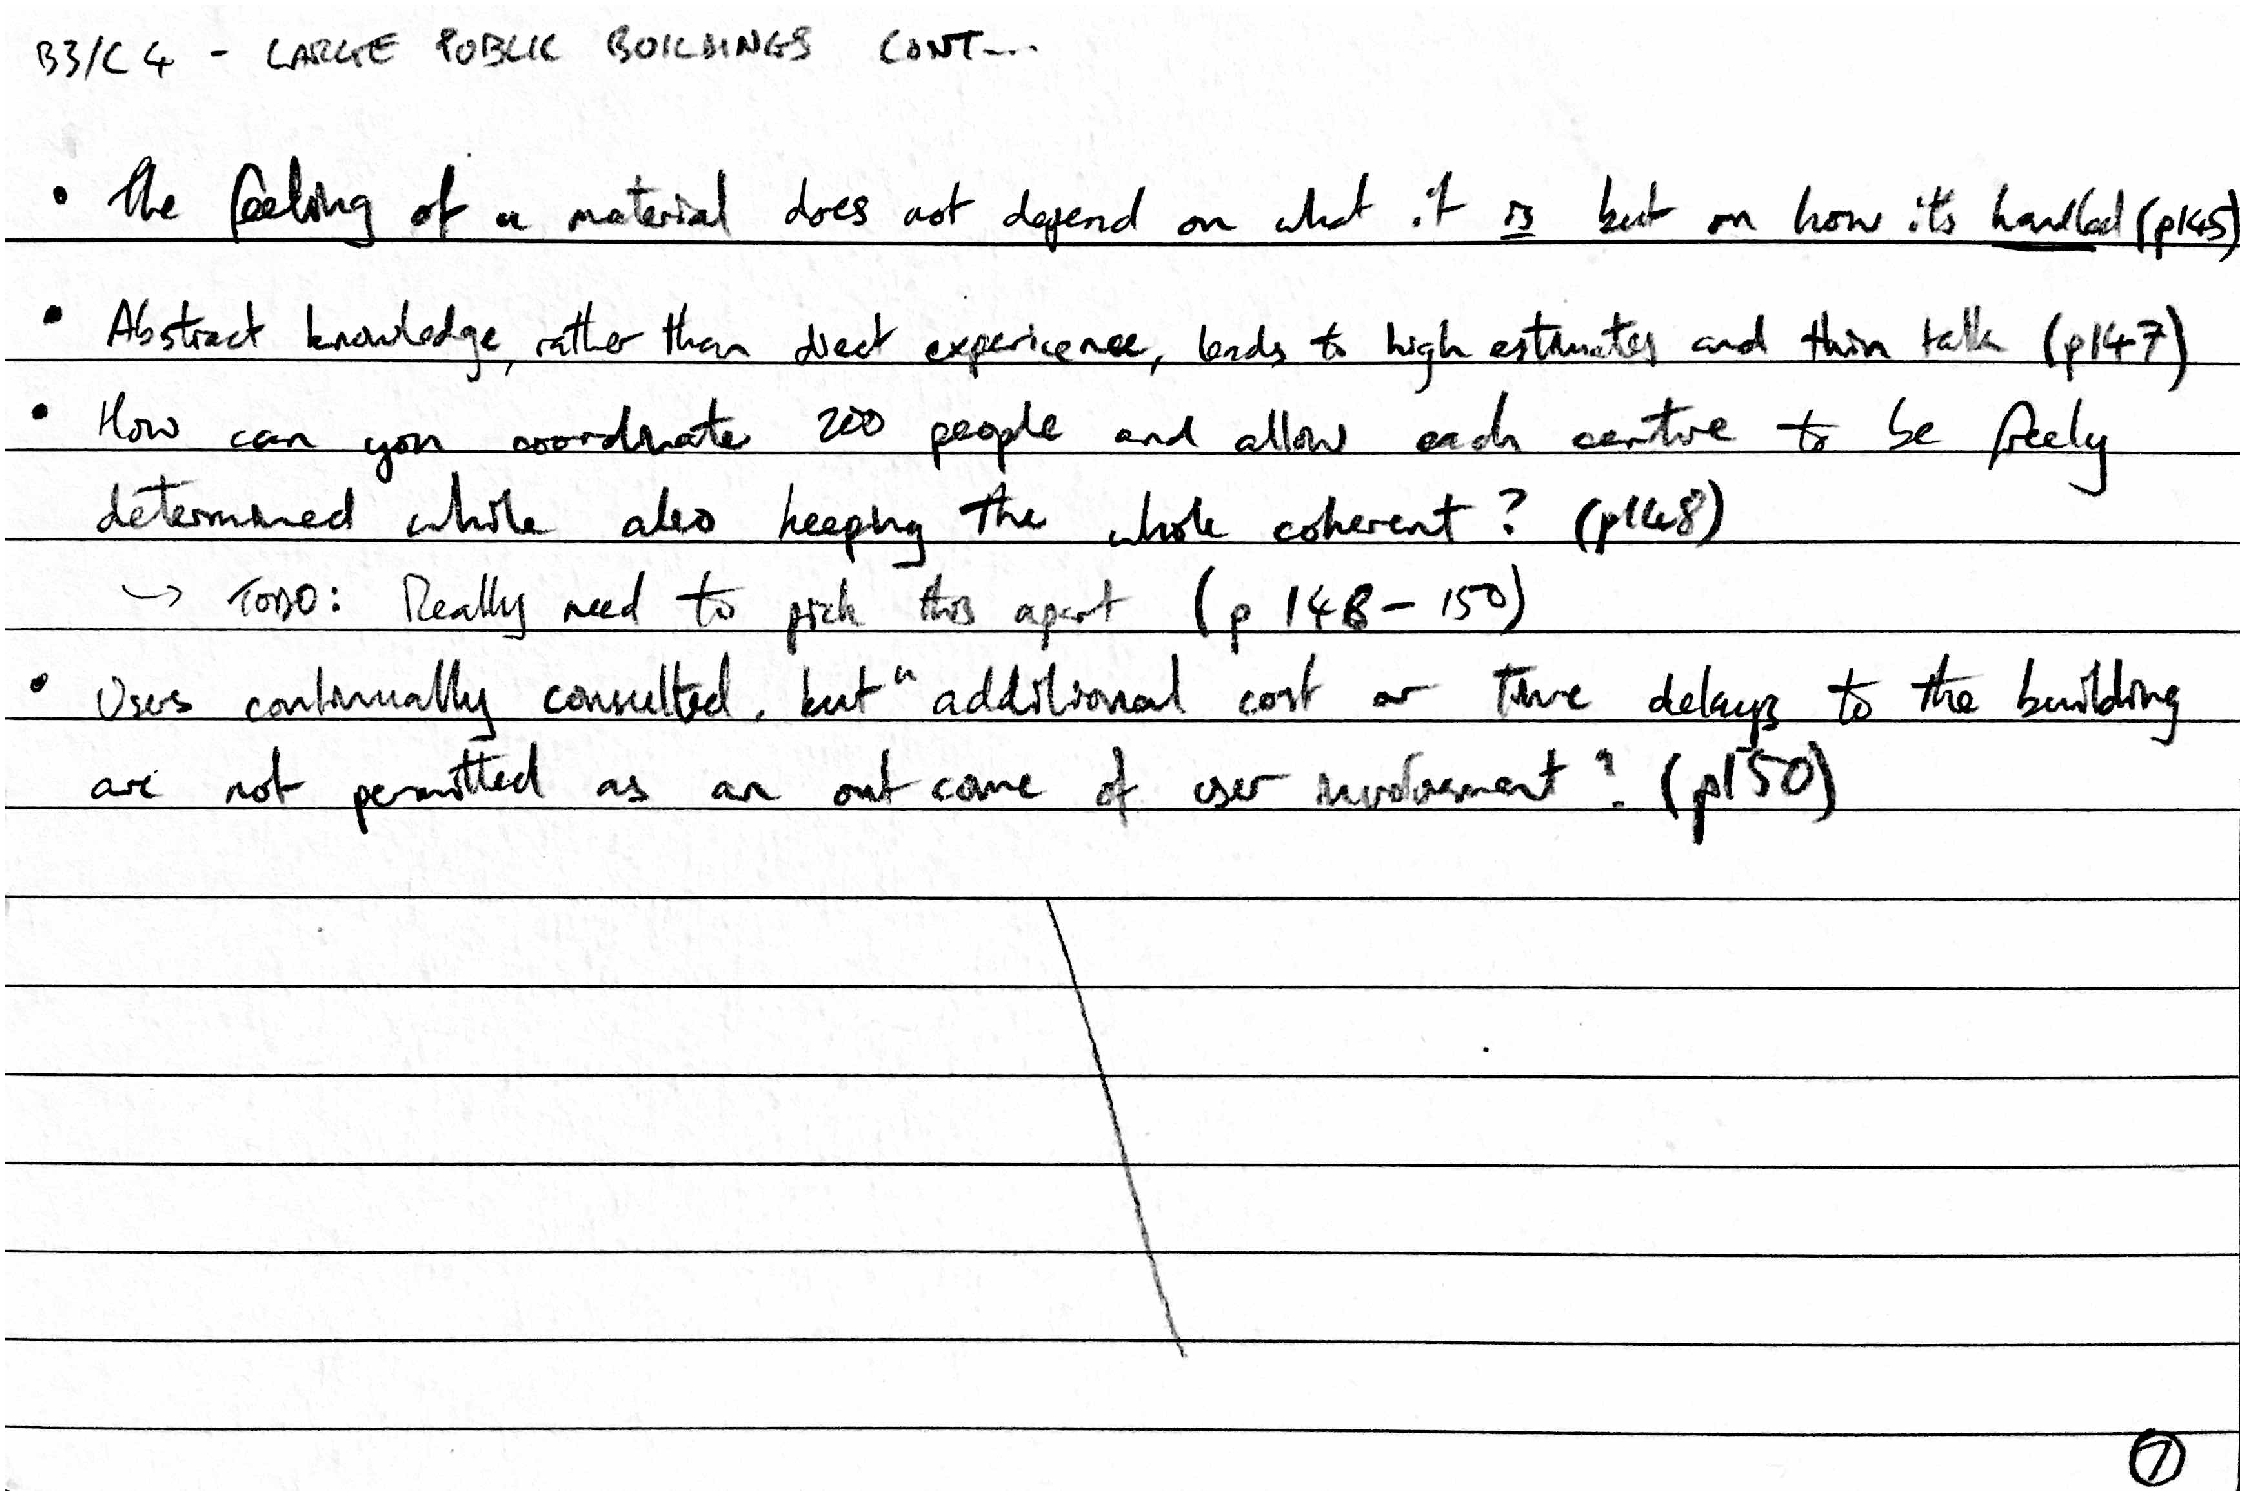 B3/C4 - LARGE PUBLIC BUILDINGS CONT...
• The feeling of a material does not depend on what it is but on how its handled (p145)
• Abstract knowledge, rather than direct experience, leads to high estimates and thin talk (p147)
• How can you coordinate 200 people and allow each centre to be freely
determined while also keeping the whole coherent? (p148)
→ TODO: Really need to pick this apart (p 148 - 150)
• Users continually consulted, but "additional cost or time delays to the building
are not permitted as an outcome of user involvement". (p150)
7